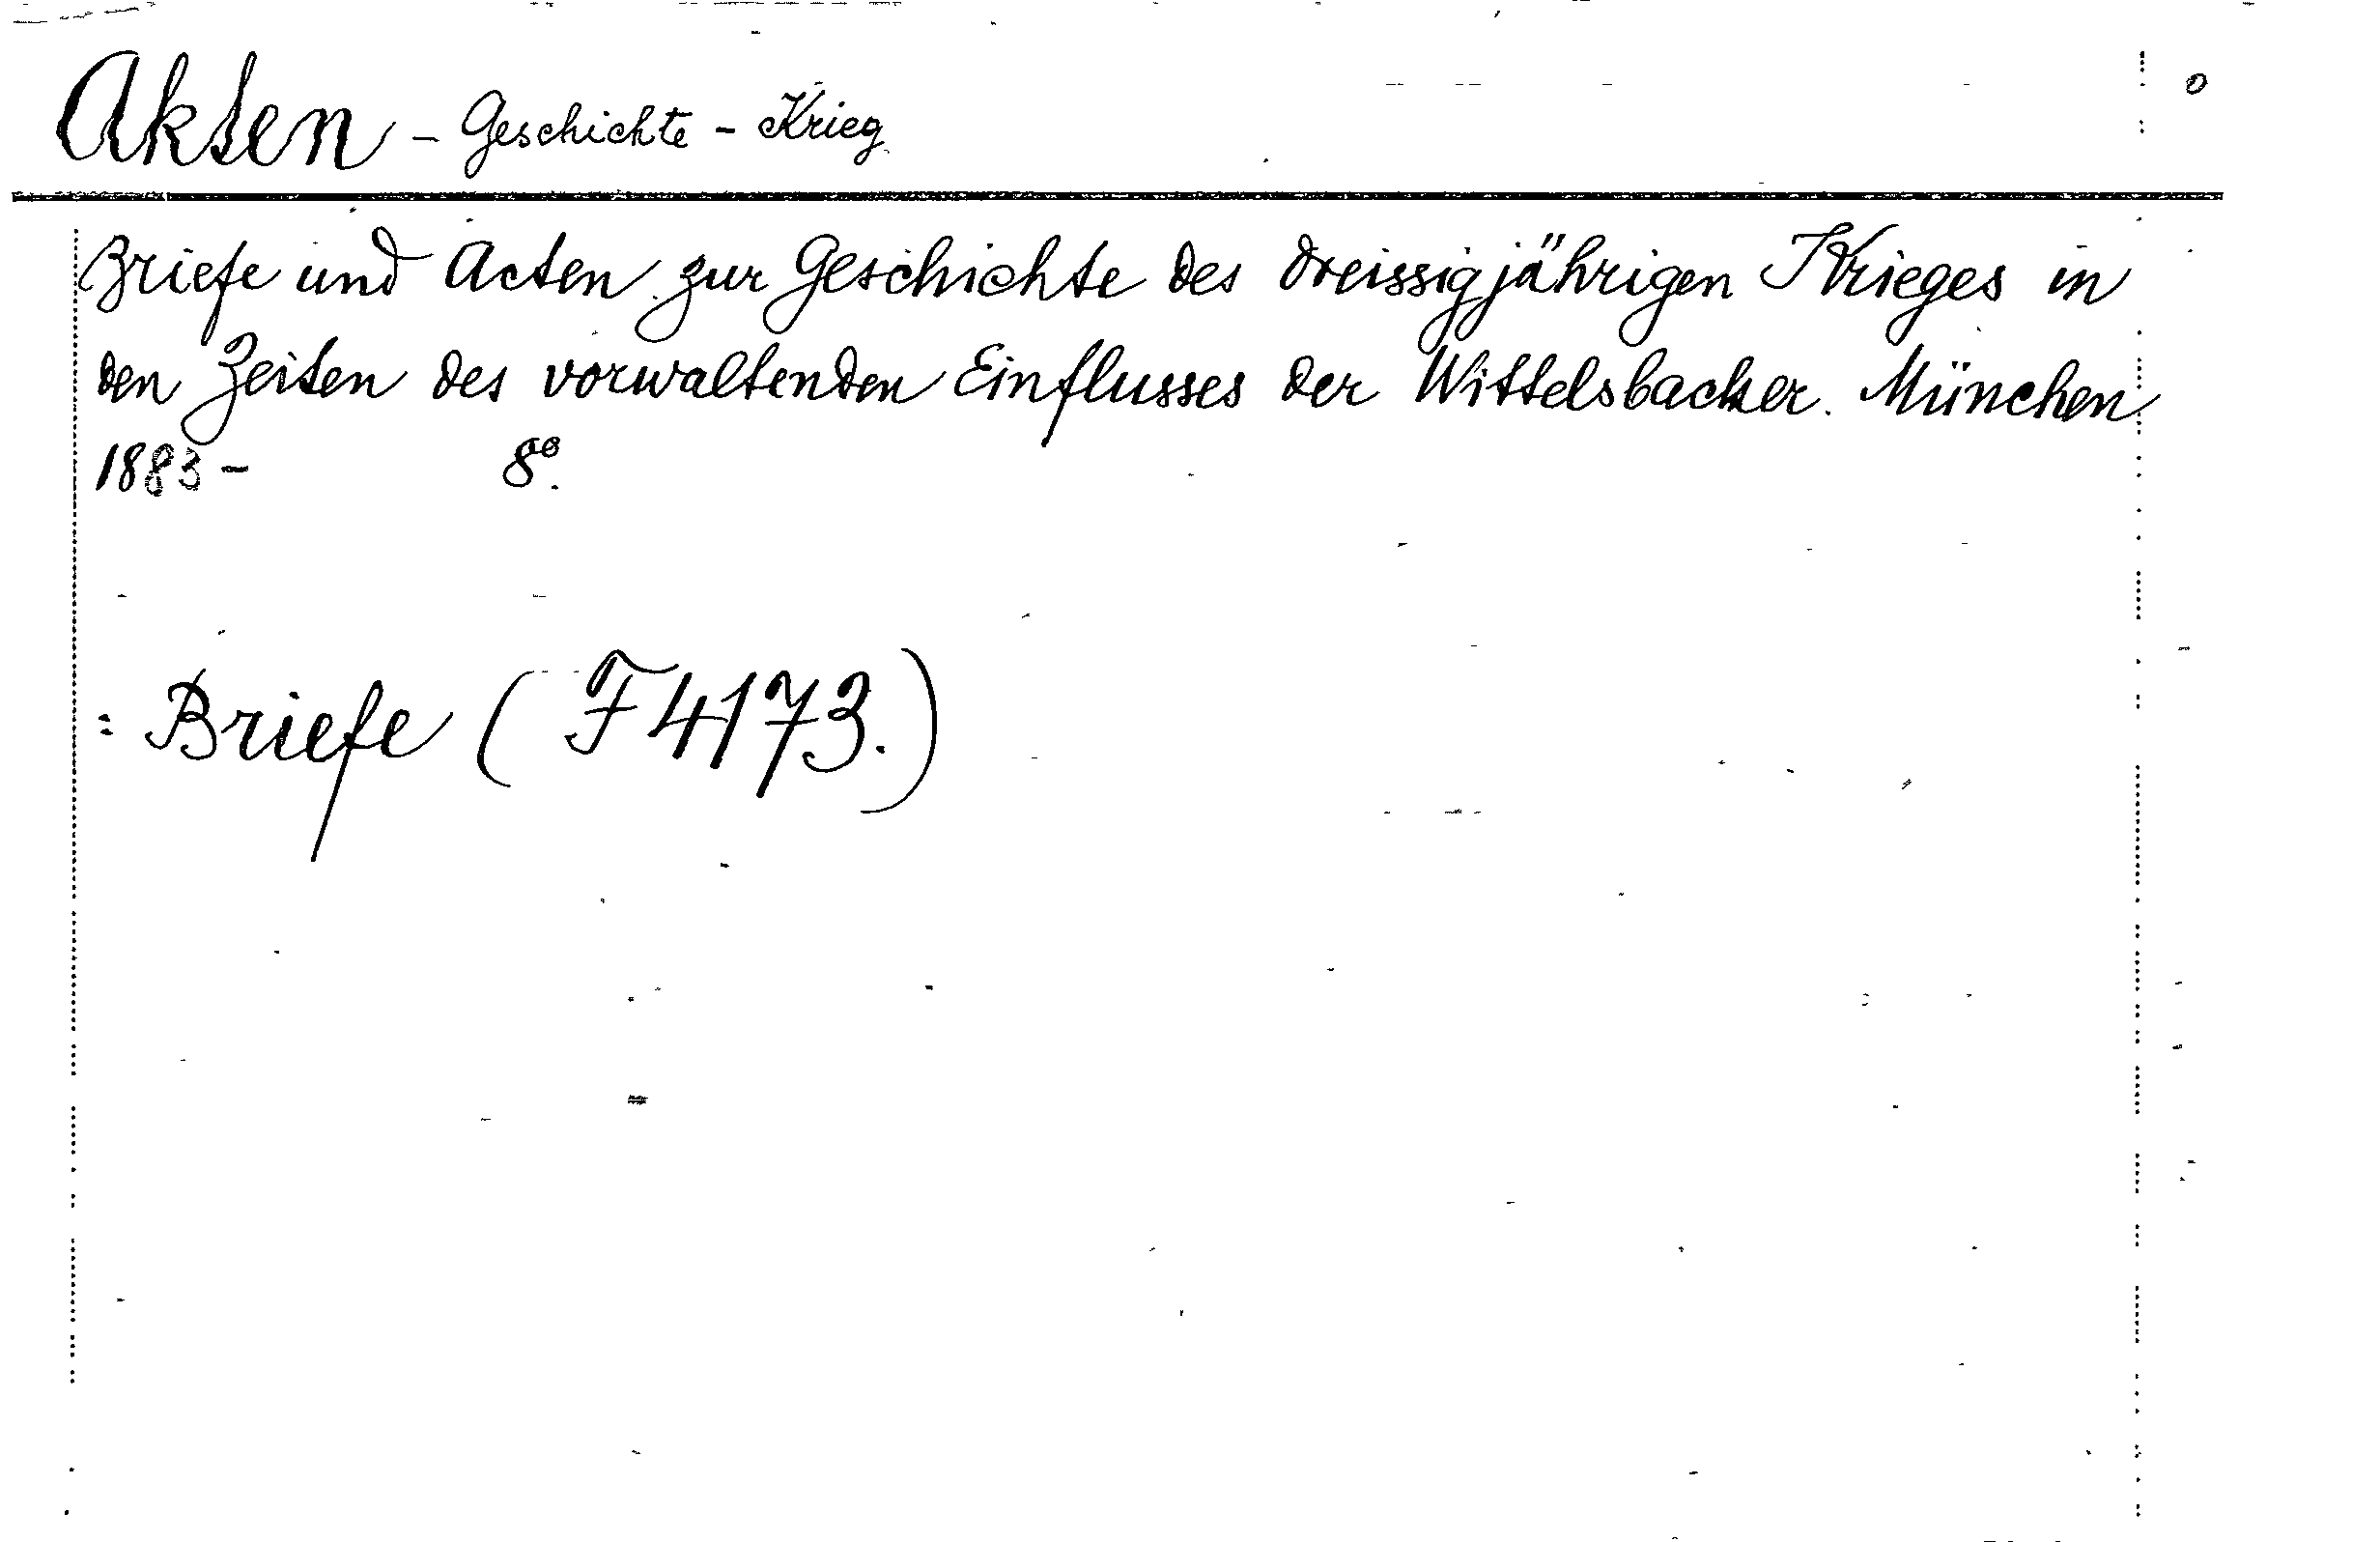 Akten - Geschichte - Krieg
Briefe und Acten zur Geschichte des dreissigjährigen Krieges in
den Zeiten des vorwaltenden Einflusses der Wittelsbacher. München
1883 - 8º.
= Briefe ( F 4173. )